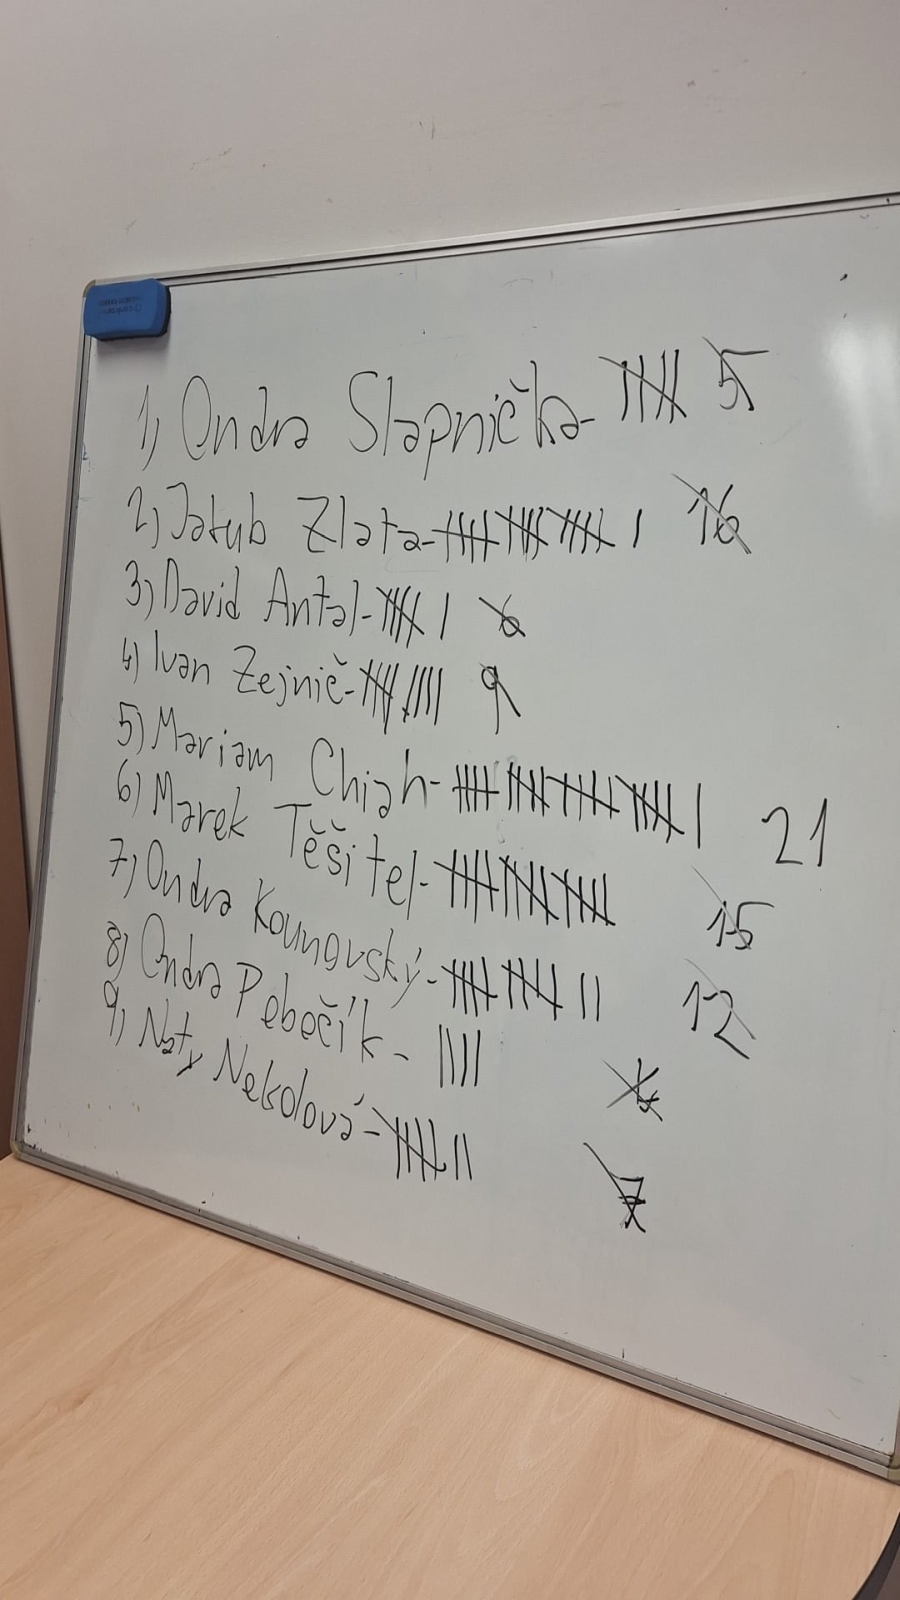 1) Ondra Slapnička - 5
2) Jakub Zlata - 16
3) David Antal - 6
4) Ivan Zejnič - 9
5) Mariam Chiah - 21
6) Marek Těšitel - 15
7) Ondra Kounovský - 12
8) Ondra Pebečík - 4
9) Naty Nekolová - 7